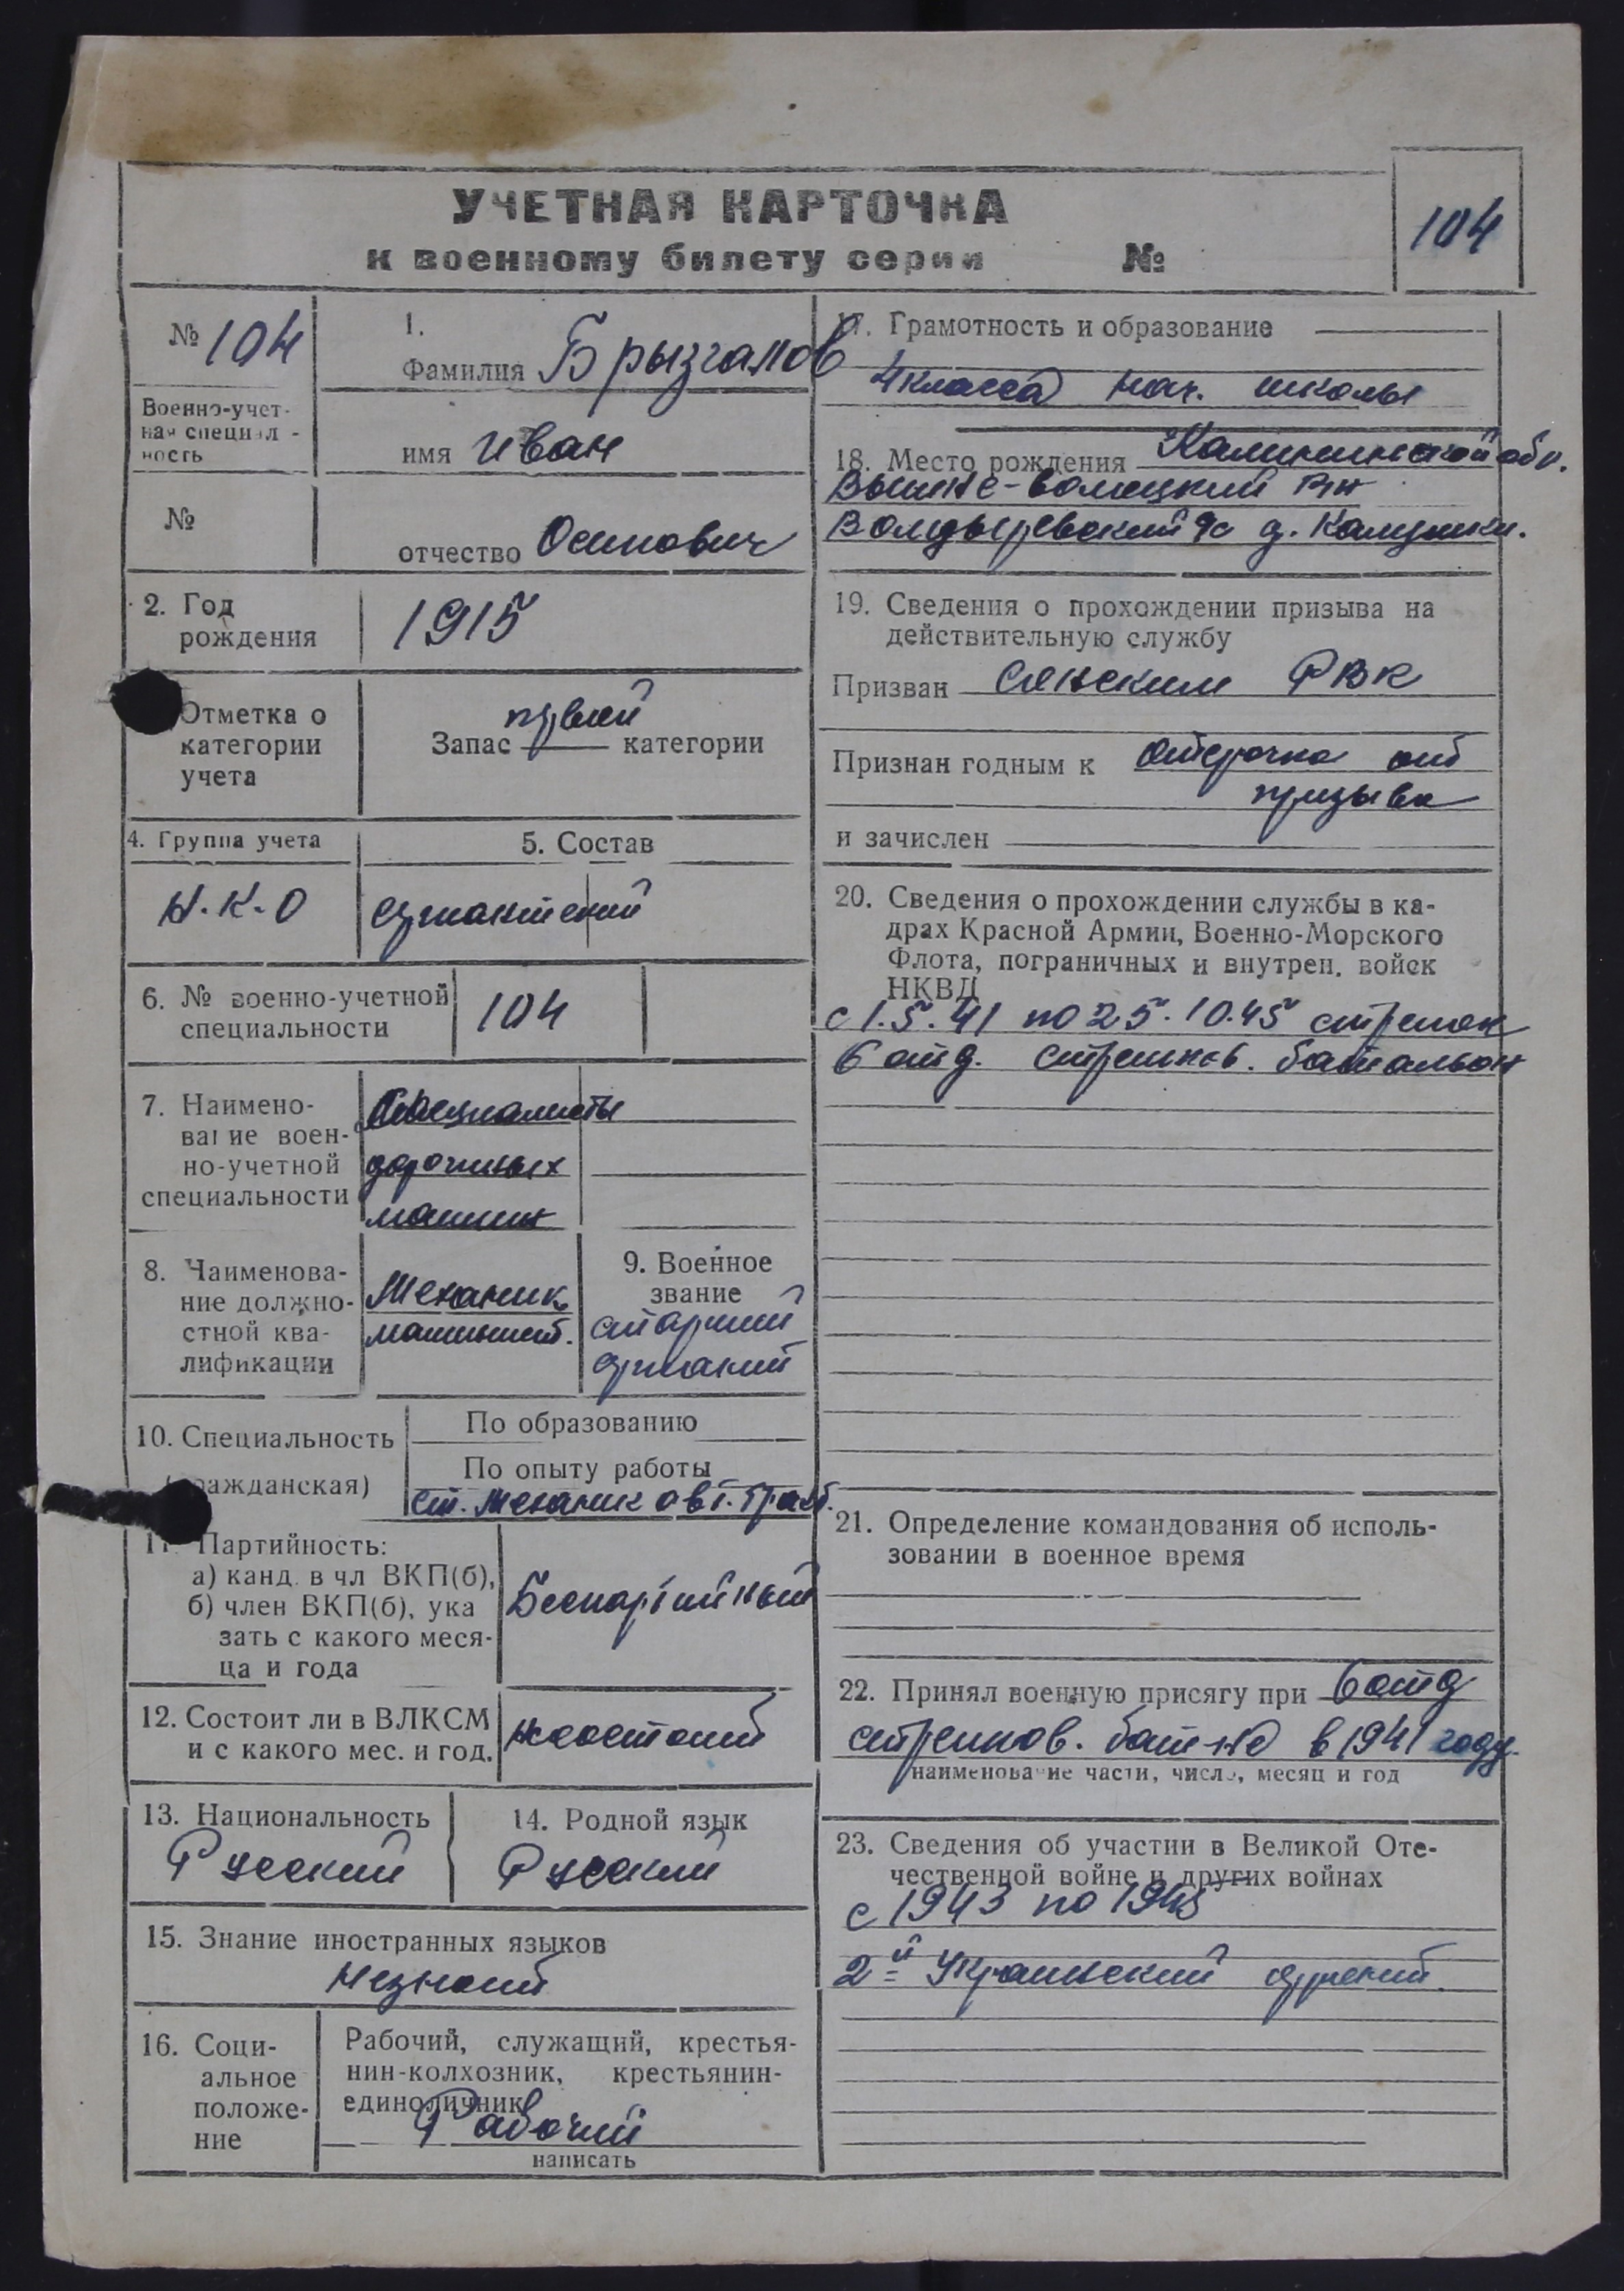 УЧЕТНАЯ КАРТОЧКА
к военному билету серии №
104
№ 104
Военно-учет-
ная специал-
ность
№
1.
Фамилия Брызгалов
имя Иван
отчество Осипович
2. Год
рождения
1915
Отметка о
категории
учета
первой
Запас категории
4. Группа учета
Н.К.О
5. Состав
сержантский
6. № военно-учетной
специальности
104
7. Наимено-
вание воен-
но-учетной
специальности
Специалисты
дорожных
машин
8. Наименова-
ние должно-
стной ква-
лификации
Механик
машинист.
9. Военное
звание
старший
сержант
10. Специальность
(гражданская)
По образованию
По опыту работы
ст. механик авт. тракт.
11. Партийность:
а) канд. в чл ВКП(б),
б) член ВКП(б), ука
зать с какого меся-
ца и года
Беспартийный
12. Состоит ли в ВЛКСМ
и с какого мес. и год.
несостоит
13. Национальность
Русский
14. Родной язык
Русский
15. Знание иностранных языков
Незнает
16. Соци-
альное
положе-
ние
Рабочий, служащий, крестья-
нин-колхозник, крестьянин-
единоличник
Рабочий
написать
17. Грамотность и образование
4 класса нач. школы
18. Место рождения Калининской обл.
Вышне-Волоцкий р-н
с/с д.
19. Сведения о прохождении призыва на
действительную службу
Призван РВК
Признан годным к отсрочка от
призыва
и зачислен
20. Сведения о прохождении службы в ка-
драх Красной Армии, Военно-Морского
Флота, пограничных и внутрен. войск
НКВД
с 1.5.41 по 25.10.45 стрелок
6 отд. стрелков. батальон
21. Определение командования об исполь-
зовании в военное время
22. Принял военную присягу при 6 отд
стрелков. бат-не в 1941 году.
наименование части, число, месяц и год
23. Сведения об участии в Великой Оте-
чественной войне и других войнах
с 1943 по 1945
2й Украинский фронт